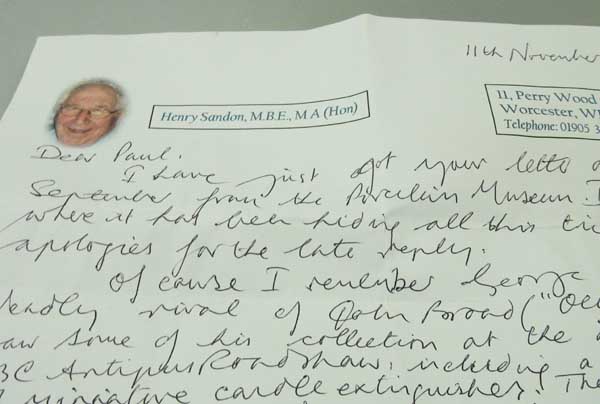 11th November
Henry Sandon, M.B.E., M A (Hon)
11, Perry Wood
Worcester, W
Telephone: 01905 3
Dear Paul.
I have just got your letter
September from the Porcelain Museum. I
where it has been hiding all this ti
apologies for the late reply.
Of cause I remember George
deadly rival of Broad
saw some of his collection at the
BC Antiques Roadshow, including a
miniative candle extinguisher! The